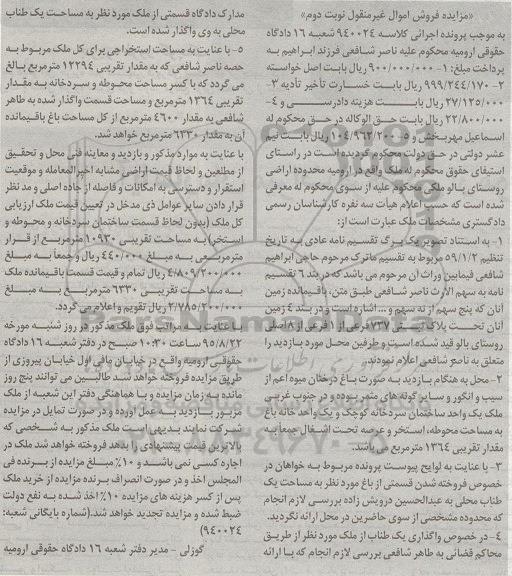 «مزایده فروش اموال غیرمنقول نوبت دوم»
به موجب پرونده اجرائی کلاسه ۹۴۰۰۲۴ شعبه ۱۶ دادگاه
حقوقی ارومیه محکوم علیه ناصر شافعی فرزند ابراهیم به
پرداخت مبلغ: ۱- ۹۰۰/۰۰۰/۰۰۰ ریال بابت اصل خواسته
۲- ۹۹۹/۲۴۴/۱۷۰ ریال بابت خسارت تأخیر تأدیه ۳-
۲۷/۱۲۵/۰۰۰ ریال بابت هزینه دادرسی و ۴-
۲۲/۸۰۰/۰۰۰ ریال بابت حق الوکاله در حق محکوم له
اسماعیل مهربخش و ۵- ۱۰۴/۹۶۲/۲۰۰ ریال بابت نیم
عشر دولتی در حق دولت محکوم گردیده است در راستای
استیفای حقوق محکوم له ملک واقع در ارومیه محدوده اراضی
روستای بالو ملک محکوم علیه از سوی محکوم له معرفی
شده است که حسب اعلام هیأت سه نفره کارشناسان رسمی
دادگستری مشخصات ملک عبارت است از:
۱- به استناد تصویر یک برگ تقسیم نامه عادی به تاریخ
تنظیم ۵۹/۱/۲ مربوط به تقسیم ماترک مرحوم حاجی ابراهیم
شافعی فیمابین وراث آن مرحوم می باشد که در بند ۶ تقسیم
نامه به سهم الارث ناصر شافعی طبق متن، باقیمانده زمین
آنان که پنج سهم از نه سهم و ... اشاره است و در بند ۴ زمین
آنان تحت پلاک ثبتی ۷۳۷ فرعی از ۱ فرعی از ۸ اصلی
روستای بالو قید شده است و طرفین محل مورد بازدید را
متعلق به ناصر شافعی اعلام نمودند.
۲- محل به هنگام بازدید به صورت باغ درختان میوه اعم از
سیب و انگور و سایر گونه های مثمر بوده و در جنوب غربی
ملک یک واحد ساختمان سردخانه کوچک و یک واحد خانه باغ
به مساحت محوطه، استخر و عرصه تحت اشغال جمعاً به
مقدار تقریبی ۱۳۶۴ مترمربع می باشد.
۳- با عنایت به لوایح پیوست پرونده مربوط به خواهان در
خصوص فروخته شدن قسمتی از باغ مورد نظر به مساحت یک
طناب محلی به عبدالحسین درویش زاده بررسی لازم انجام
که محدوده مشخصی از سوی حاضرین در محل ارائه نگردید.
۴- در خصوص واگذاری یک طناب از ملک مورد نظر از طریق
محاکم قضائی به طاهر شافعی بررسی لازم انجام که با ارائه
مدارک دادگاه قسمتی از ملک مورد نظر به مساحت یک طناب
محلی به وی واگذار شده است.
۵- با عنایت به مساحت استخراجی برای کل ملک مربوط به
حصه ناصر شافعی که به مقدار تقریبی ۱۲۲۹۴ مترمربع بالغ
می گردد که با کسر مساحت محوطه و سردخانه به مقدار
تقریبی ۱۳۶۴ مترمربع و مساحت قسمت واگذار شده به طاهر
شافعی به مقدار ۴۶۰۰ مترمربع از کل مساحت باغ باقیمانده
آن به مقدار ۶۳۳۰ مترمربع خواهد شد.
با عنایت به موارد مذکور و بازدید و معاینه فنی محل و تحقیق
از مطلعین و لحاظ قیمت اراضی مشابه اخیرالمعامله و موقعیت
استقرار و دسترسی به امکانات و فاصله از جاده اصلی و مد نظر
قرار دادن سایر عوامل ذی مدخل در تعیین قیمت ملک ارزیابی
کل ملک (بدون لحاظ قسمت ساختمان سردخانه و محوطه و
استخر) به مساحت تقریبی ۱۰۹۳۰ مترمربع از قرار
مترمربعی به مبلغ ۴۴۰/۰۰۰ ریال و جمعاً به مبلغ
۴/۸۰۹/۲۰۰/۰۰۰ ریال تمام و قیمت قسمت باقیمانده ملک
به مساحت تقریبی ۶۳۳۰ مترمربع به مبلغ
۲/۷۸۵/۲۰۰/۰۰۰ ریال تقویم و اعلام می گردد.
با عنایت به مراتب فوق ملک مذکور در روز شنبه مورخه
۹۵/۸/۲۲ ساعت ۱۰:۳۰ صبح در دفتر شعبه ۱۶ دادگاه
حقوقی ارومیه واقع در خیابان مافی اول خیابان پیروزی از
طریق مزایده فروخته خواهد شد طالبین می توانند پنج روز
مانده به زمان مزایده و با هماهنگی دفتر این شعبه از ملک
مزبور بازدید به عمل آورده و در صورت تمایل در مزایده
شرکت نمایند بدیهی است ملک مذکور به شخصی که
بالاترین قیمت پیشنهادی را بدهد فروخته خواهد شد ملک در
اجاره کسی نمی باشد و ۱۰% مبلغ مزایده از برنده فی
المجلس اخذ و در صورت انصراف برنده مزایده از خرید ملک
پس از کسر هزینه های مزایده ۱۰% اخذ شده به نفع دولت
ضبط شده و مزایده تجدید خواهد شد. (شماره بایگانی شعبه:
۹۴۰۰۲۴)
گوزلی - مدیر دفتر شعبه ۱۶ دادگاه حقوقی ارومیه